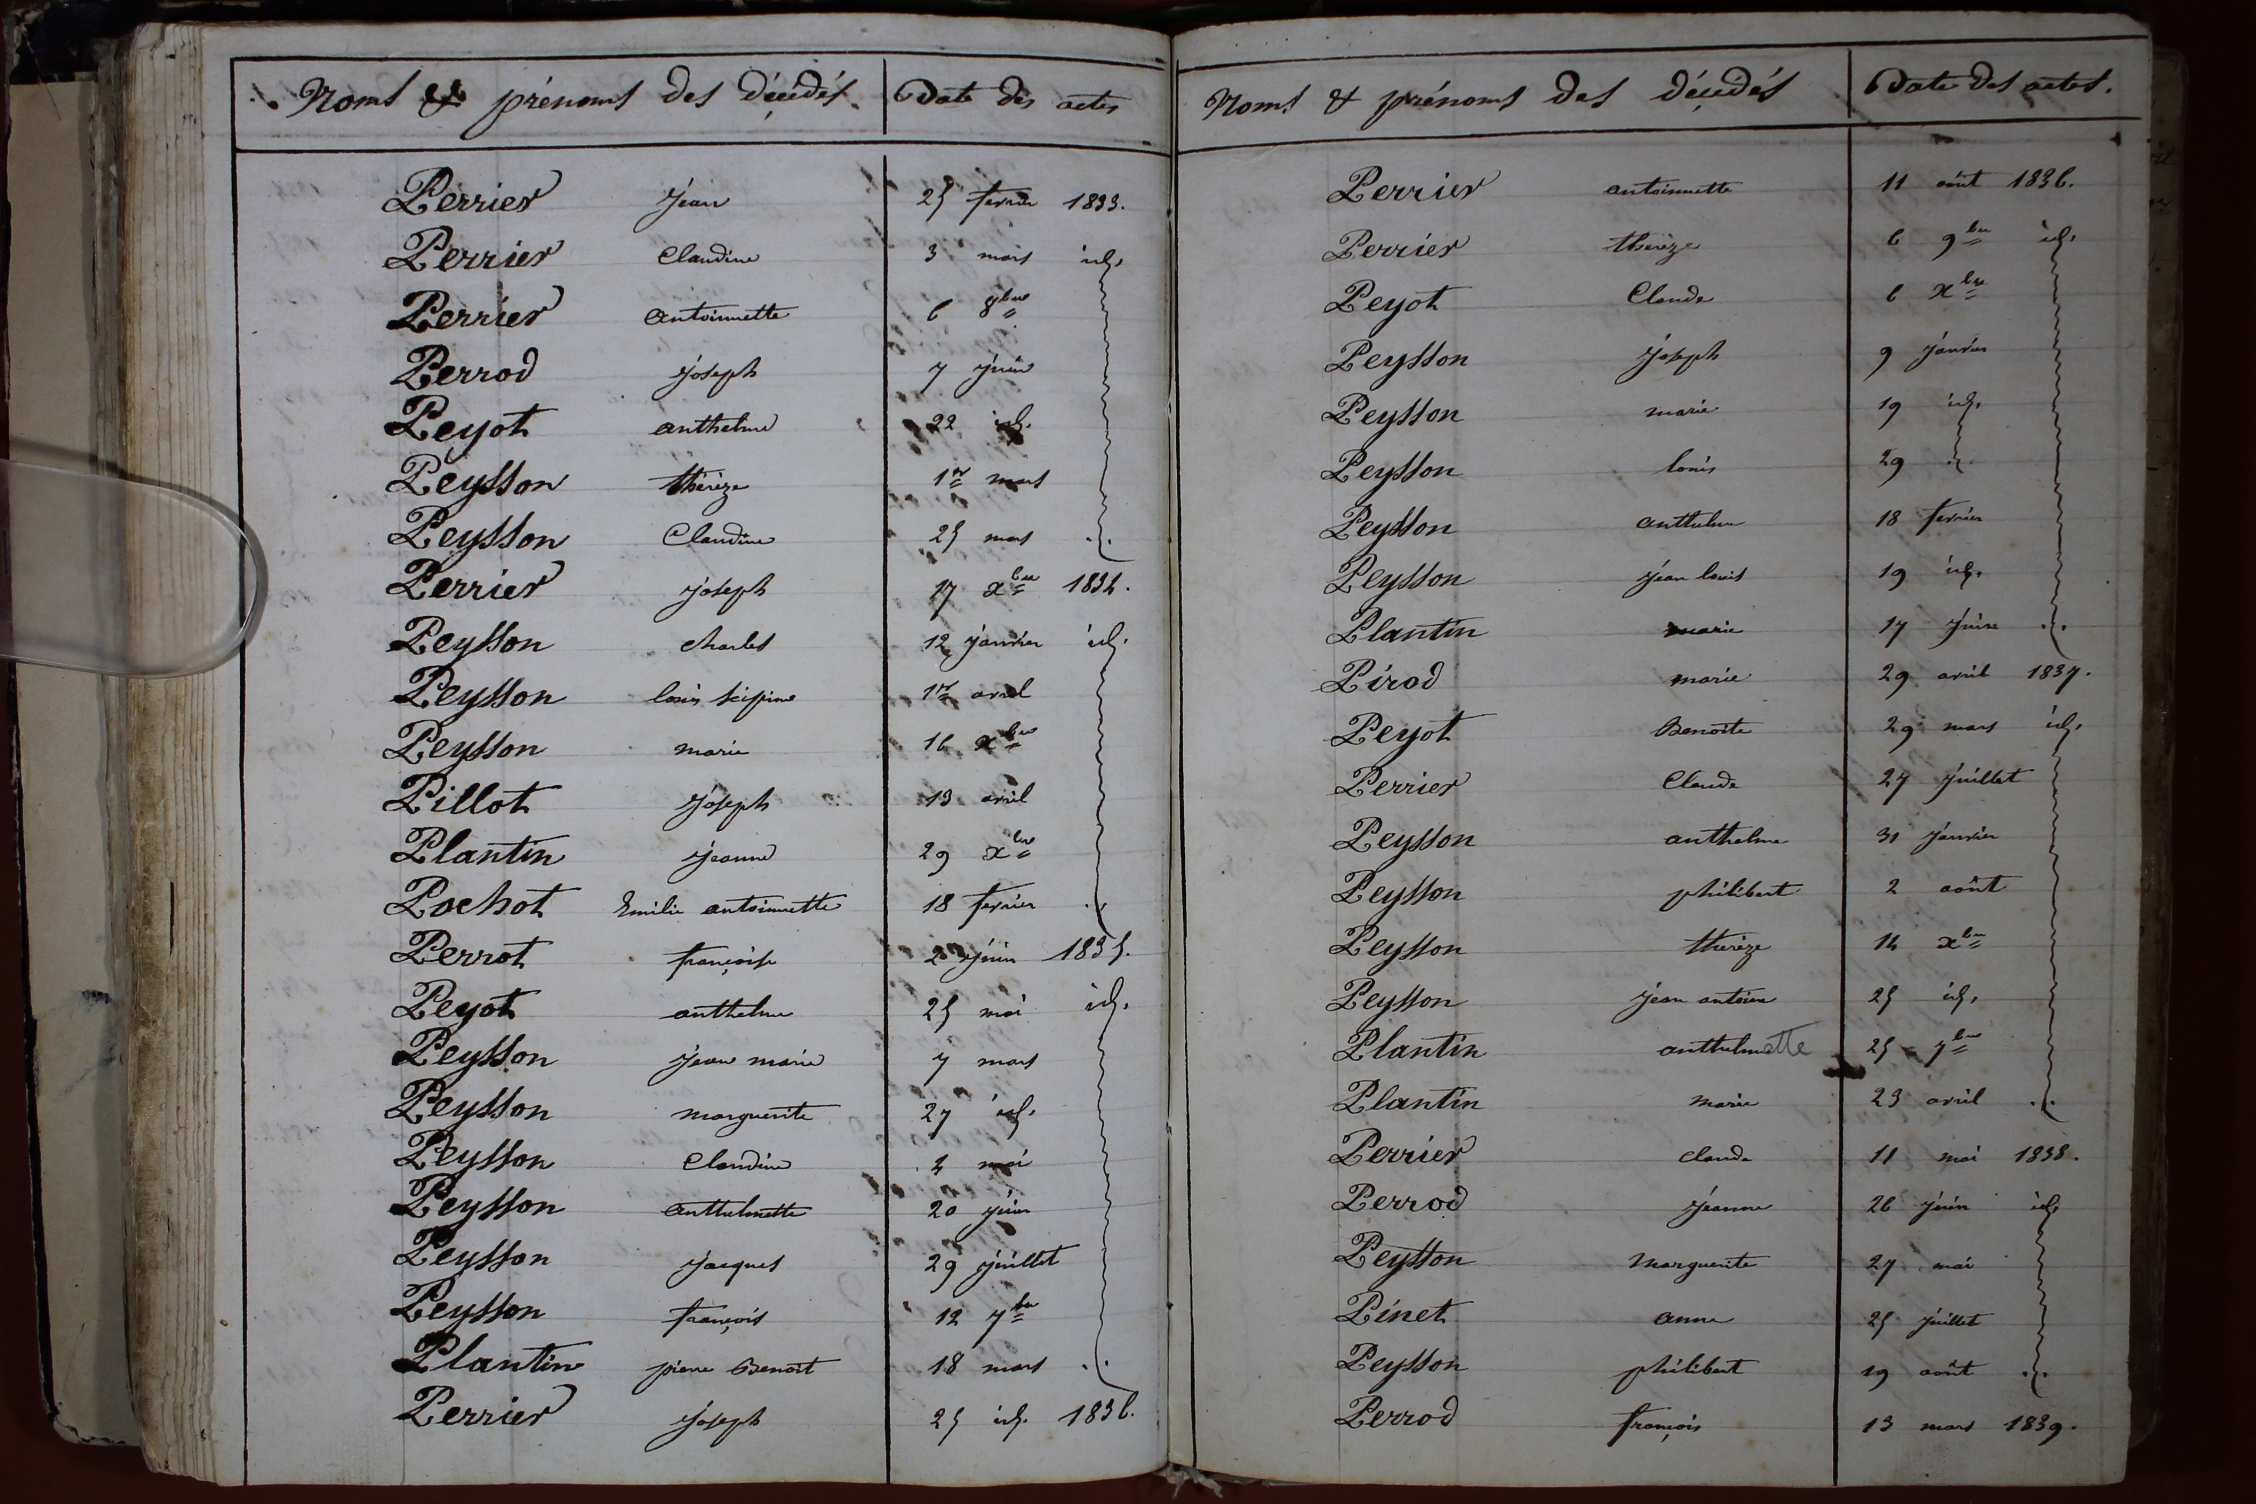 Noms & prénoms des décédés Date des actes
Perrier jean 25 fevrier 1833.
Perrier Claudine 3 mars id.
Perrier antoinette 6 8bre
Perrod joseph 7 juin
Peyot anthelme 22 id.
Peysson thérèze 1er mars
Peysson Claudine 25 mars
Perrier joseph 17 xbre 1834.
Peysson charles 12 janvier id.
Peysson louis 1er avril
Peysson marie 16 xbre
Pillot joseph 13 avril
Plantin jeanne 29 xbre
Pochot Emilie antoinette 18 fevrier
Perrot françoise 2 juin 1835.
Peyot anthelme 25 mai id.
Peysson jean marie 7 mars
Peysson marguerite 27 id.
Peysson Claudine 4 mai
Peysson anthelmette 20 juin
Peysson jacques 29 juillet
Peysson françois 12 7bre
Plantin pierre Benoit 18 mars
Perrier joseph 25 id. 1836.
Noms & prénoms des décédés Date des actes.
Perrier antoinette 11 août 1836.
Perrier thérèze 6 9bre id.
Peyot Claude 6 xbre
Peysson joseph 9 janvier
Peysson marie 19 id.
Peysson louis 29
Peysson anthelme 18 fevrier
Peysson jean louis 19 id.
Plantin marie 17 juin
Pirod marie 29 avril 1837.
Peyot Benoite 29 mars id.
Perrier Claude 27 juillet
Peysson anthelme 31 janvier
Peysson philibert 2 août
Peysson thérèze 14 xbre
Peysson jean antoine 25 id.
Plantin anthelmette 25 7bre
Plantin marie 23 avril
Perrier claude 11 mai 1838.
Perrod jeanne 26 juin id.
Peysson marguerite 27 mai
Pinet anne 25 juillet
Peysson philibert 19 août
Perrod françois 13 mars 1839.